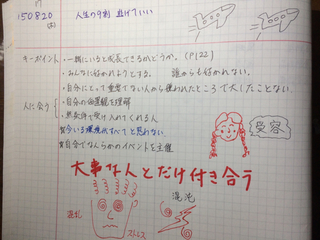 150820
人生の9割 逃げていい
キーポイント・一緒にいると成長できるかどうか。(P122)
・みんなに好かれようとする。 誰からも好かれない。
・自分にとって重要でない人から嫌われたところで大したことない。
人に会う
・自分の価値観を理解
・無条件で受け入れてくれる人
今いる環境がすべてと思わない
自分でなんらかのイベントを主催
受容
大事な人とだけ付き合う
混乱
ストレス
混沌